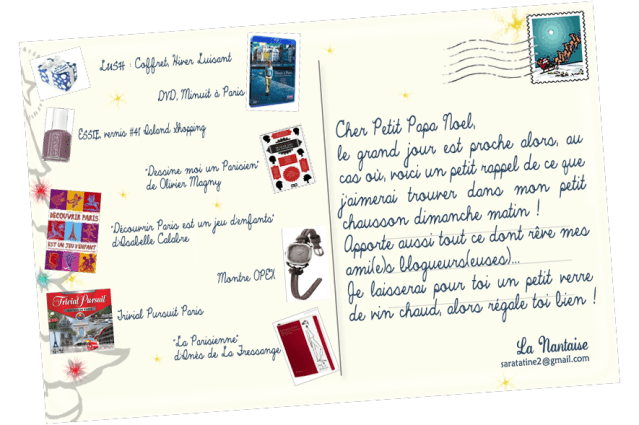 LUSH : Coffret, Hiver Luisant
DVD, Minuit à Paris
ESSIE, vernis #41 Island Shopping
"Dessine moi un Parisien"
de Olivier Magny
DÉCOUVRIR PARIS
EST UN JEU D'ENFANT
"Découvrir Paris est un jeu d'enfants"
d'Isabelle Calabre
Montre OPEX
Trivial Pursuit
Trivial Pursuit Paris
"La Parisienne"
d'Inès de La Fressange
Cher Petit Papa Noel,
le grand jour est proche alors, au
cas où, voici un petit rappel de ce que
j'aimerai trouver dans mon petit
chausson dimanche matin !
Apporte aussi tout ce dont rêve mes
ami(e)s blogueurs(euses)...
Je laisserai pour toi un petit verre
de vin chaud, alors régale toi bien !
La Nantaise
saratatine2@gmail.com